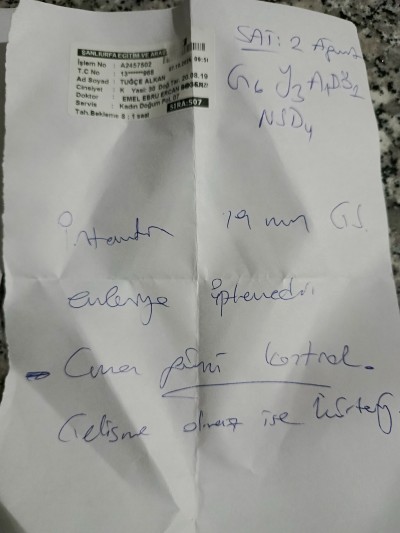 ŞANLIURFA EĞİTİM VE ARAŞ
İşlem No : A2457602
T.C No : 13******968
Ad Soyad : TUĞÇE ALKAN
Cinsiyet : K Yaşı: 30 Doğ Tar:
Doktor : EMEL EBRU ERCAN
Servis : Kadın Doğum Pol. 07
Tah.Bekleme S : 1 saat
SIRA:507
SAT: 2 Ağustos
G6 Y3 A1 D&B2
NSD4
19 mm GS
izlenmedi
- Cuma günü kontrol.
Gelişme olmaz ise Küretaj